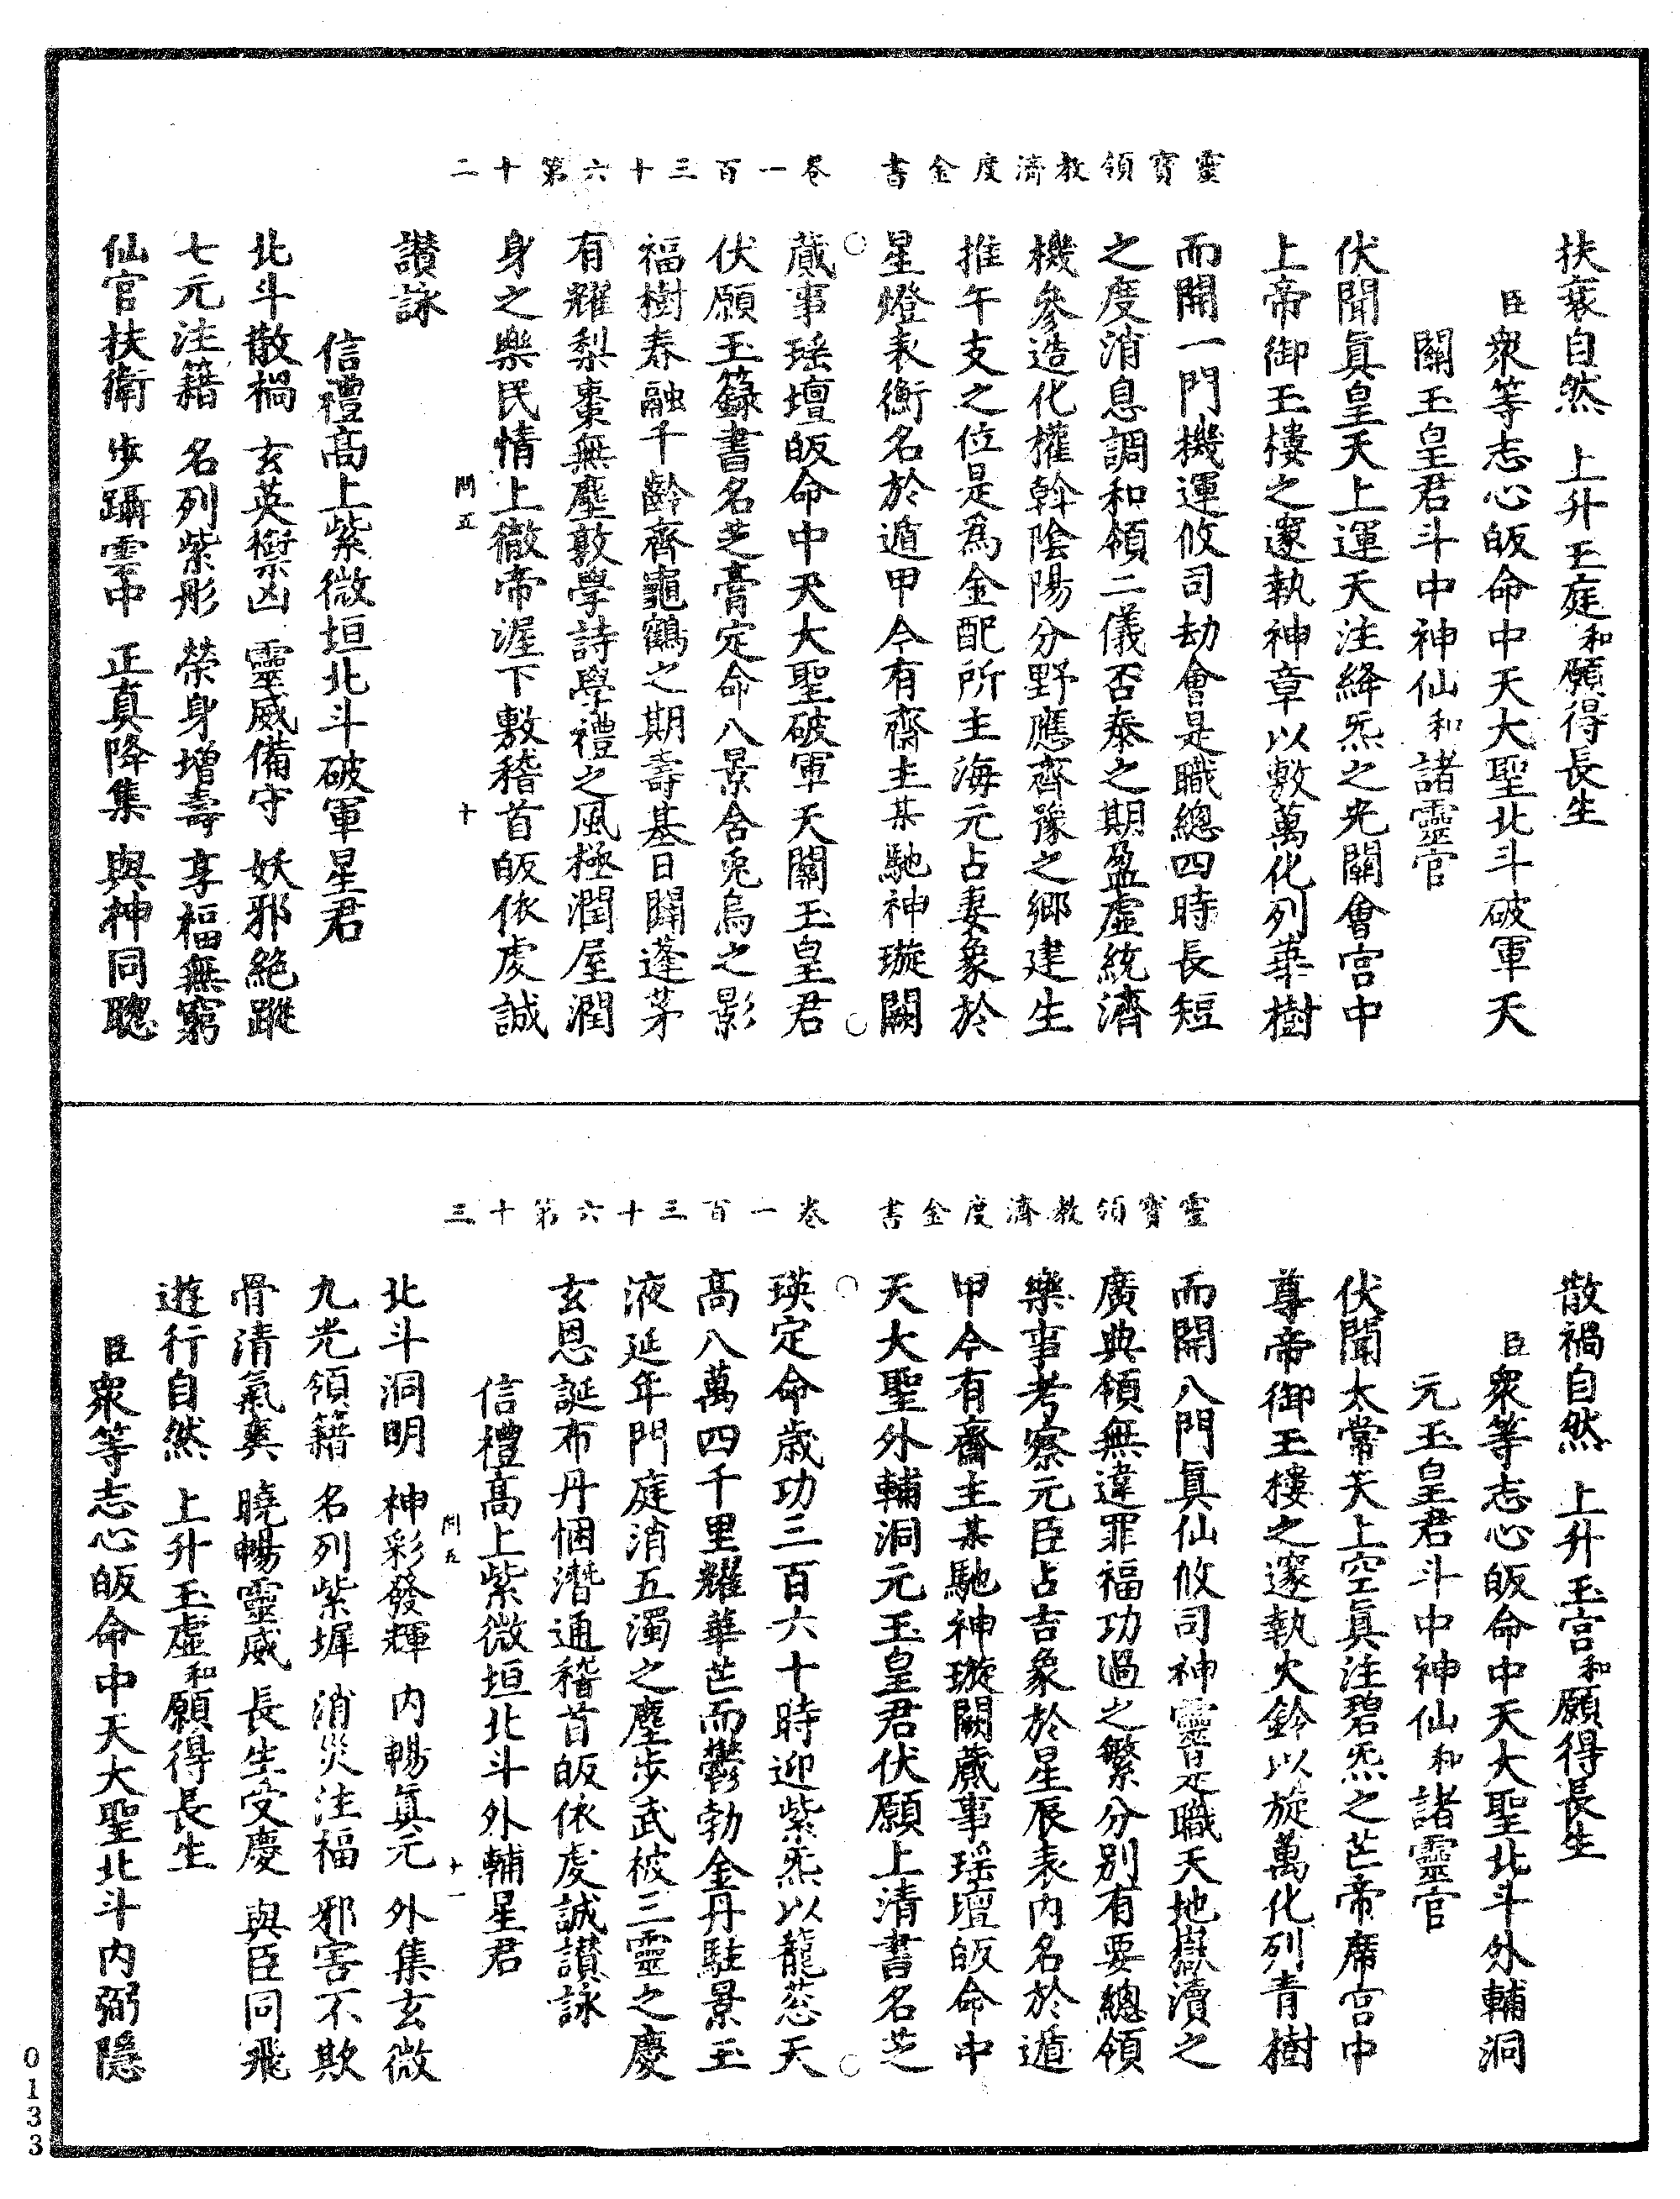 靈寶領教濟度金書　卷一百三十六第十二
扶衰自然　上升玉庭和願得長生
臣衆等志心皈命中天大聖北斗破軍天
關玉皇君斗中神仙和諸靈官
伏聞眞皇天上運天注絳炁之光關會宮中
上帝御玉樓之邃執神章以敷萬化列華樹
而開一門機運攸司劫會是職總四時長短
之度消息調和領二儀否泰之期盈虛統濟
機參造化權斡陰陽分野應齊豫之鄉建生
推午支之位是爲金配所主海元占妻象於
星燈表衡名於遁甲今有齋主某馳神璇闕
蕆事瑶壇皈命中天大聖破軍天關玉皇君
伏願玉籙書名芝膏定命八景含兎烏之影
福樹春融千齡齊龜鶴之期壽基日闢蓬茅
有耀梨棗無塵斆學詩學禮之風極潤屋潤
身之樂民情上徹帝渥下敷稽首皈依虔誠
讃詠
信禮高上紫微垣北斗破軍星君
北斗散禍　玄英禦凶　靈威備守　妖邪絶蹤
七元注籍　名列紫彤　榮身增壽　享福無窮
仙官扶衛　步躡雲中　正真降集　與神同聰
問五　十
靈寶領教濟度金書　卷一百三十六第十三
散禍自然　上升玉宮和願得長生
臣衆等志心皈命中天大聖北斗外輔洞
元玉皇君斗中神仙和諸靈官
伏聞太常天上空眞注碧炁之芒帝席宮中
尊帝御玉樓之邃執火鈴以旋萬化列青樹
而開八門眞仙攸司神靈是職天地嶽瀆之
廣典領無違罪福功過之繁分別有要總領
樂事考察元臣占吉象於星辰表内名於遁
甲今有齋主某馳神璇闕蕆事瑶壇皈命中
天大聖外輔洞元玉皇君伏願上清書名芝
瑛定命歲功三百六十時迎紫炁以蘢蔥天
高八萬四千里耀華芒而鬱勃金丹駐景玉
液延年門庭消五濁之塵步武被三靈之慶
玄恩誕布丹悃潛通稽首皈依虔誠讃詠
信禮高上紫微垣北斗外輔星君
北斗洞明　神彩發輝　内暢眞元　外集玄微
九光領籍　名列紫墀　消災注福　邪害不欺
骨清氣爽　曉暢靈威　長生受慶　與臣同飛
遊行自然　上升玉虛和願得長生
臣衆等志心皈命中天大聖北斗内弼隱
問五　十一
0133